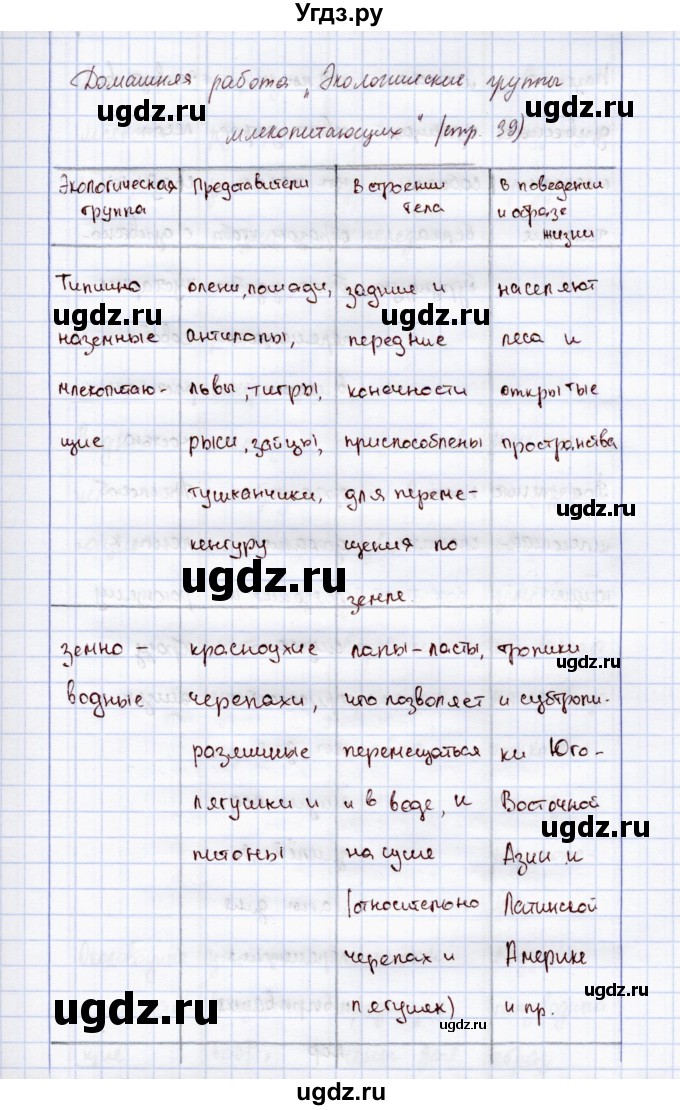 Угдз.ру
Домашняя работа „Экологические группы
млекопитающих“ (стр. 39)
Экологическая группа
Представители
В строении тела
В поведении и образе жизни
Типично
наземные
млекопитаю-
щие
олени, лошади,
антилопы,
львы, тигры,
рыси, зайцы,
тушканчики,
кенгуру
задние и
передние
конечности
приспособлены
для переме-
щения по
земле.
населяют
леса и
открытые
пространства
земно-
водные
красноухие
черепахи,
различные
лягушки и
питоны
лапы-ласты,
что позволяет
перемещаться
и в воде, и
на суше
(относительно
черепах и
лягушек)
тропики
и субтропи-
ки Юго-
Восточной
Азии и
Латинской
Америке
и пр.
ugdz.ru
ugdz.ru
ugdz.ru
ugdz.ru
ugdz.ru
ugdz.ru
ugdz.ru
ugdz.ru
ugdz.ru
ugdz.ru
ugdz.ru
ugdz.ru
ugdz.ru
ugdz.ru